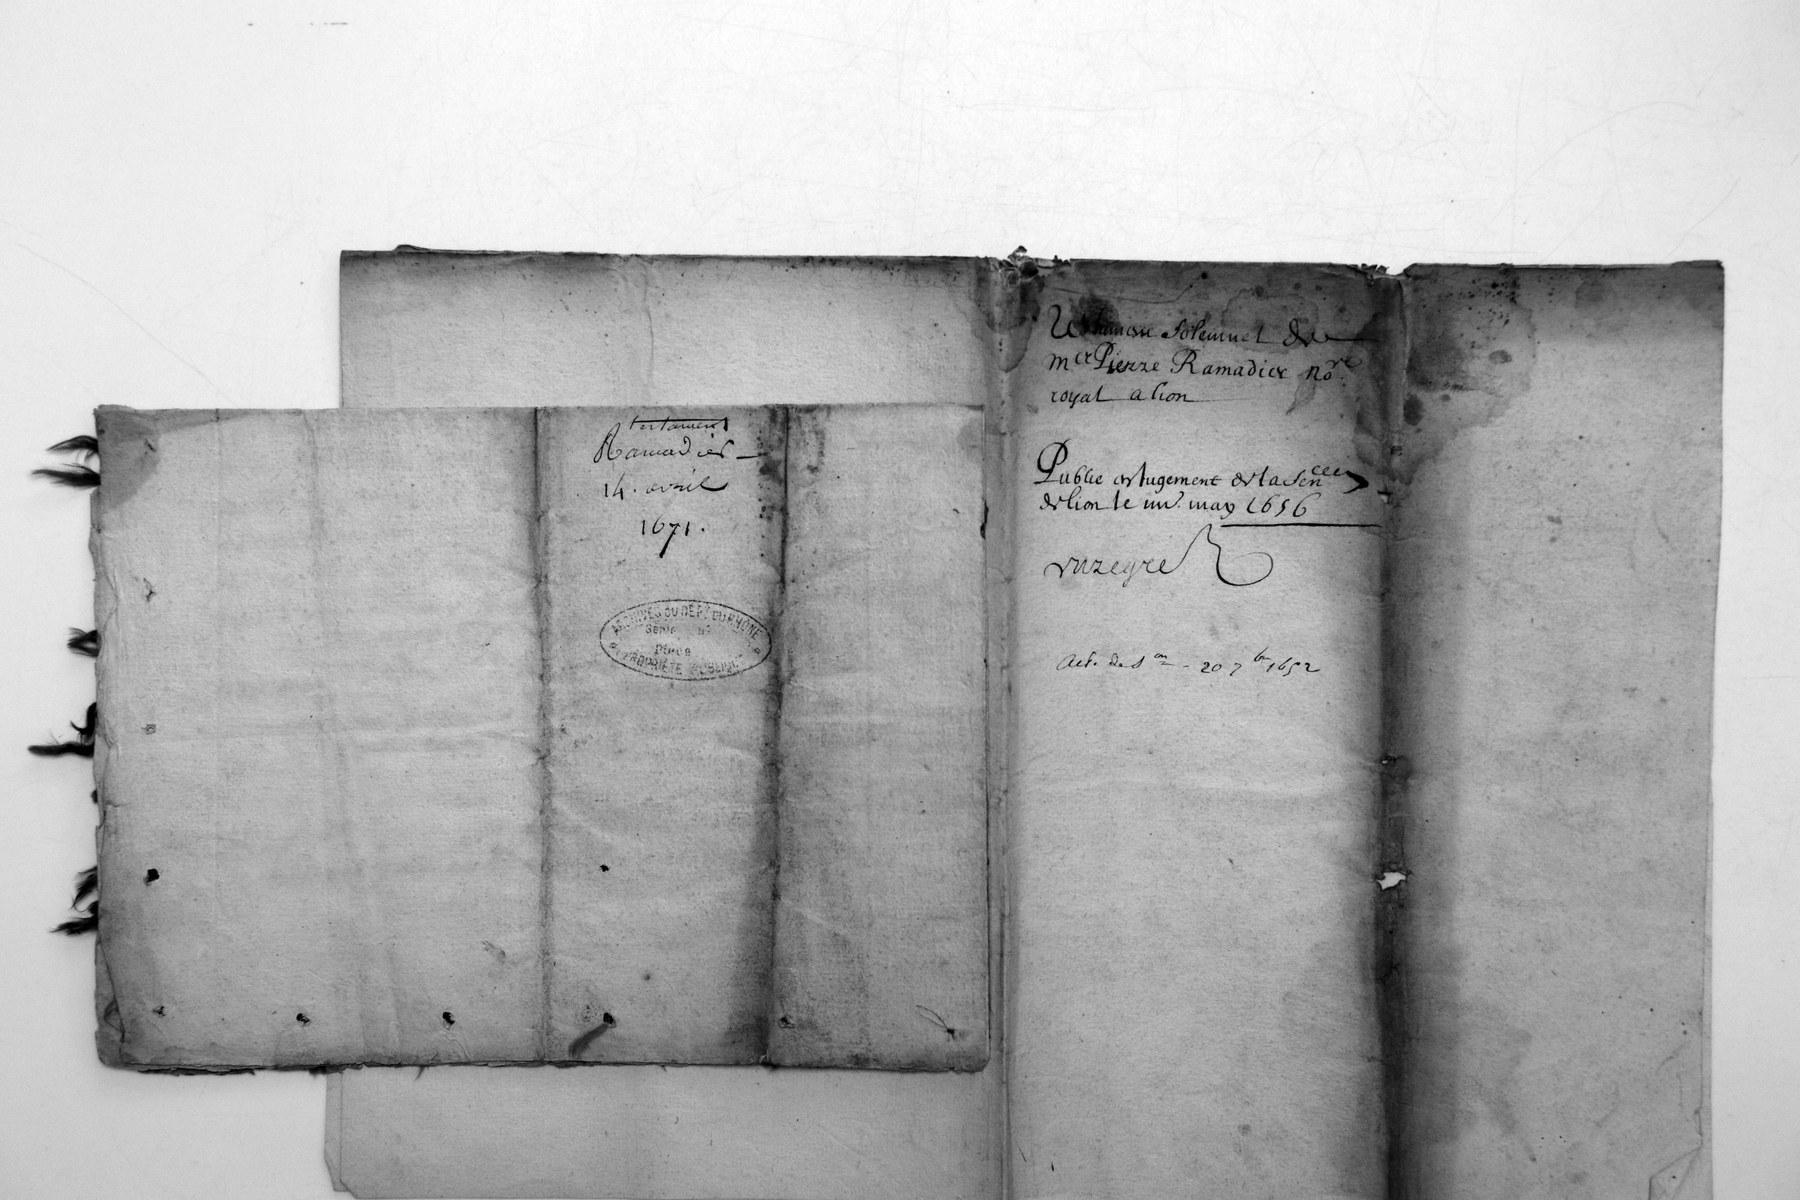 testament
Ramadier
14. avril
1671.
ARCHIVES DU DÉPT DU RHÔNE
Série n°
pièce
PROPRIÉTÉ PUBLIQUE
solemnel de
mre Pierre Ramadier nore
royal a lion
Publie en Jugement de la Sencée
de lion le may 1656
Act. de s.on - 20 7bre 1652